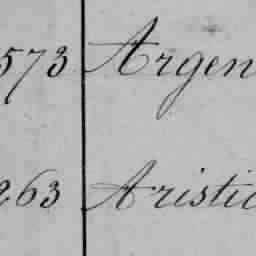 573 Argen
263 Aristic